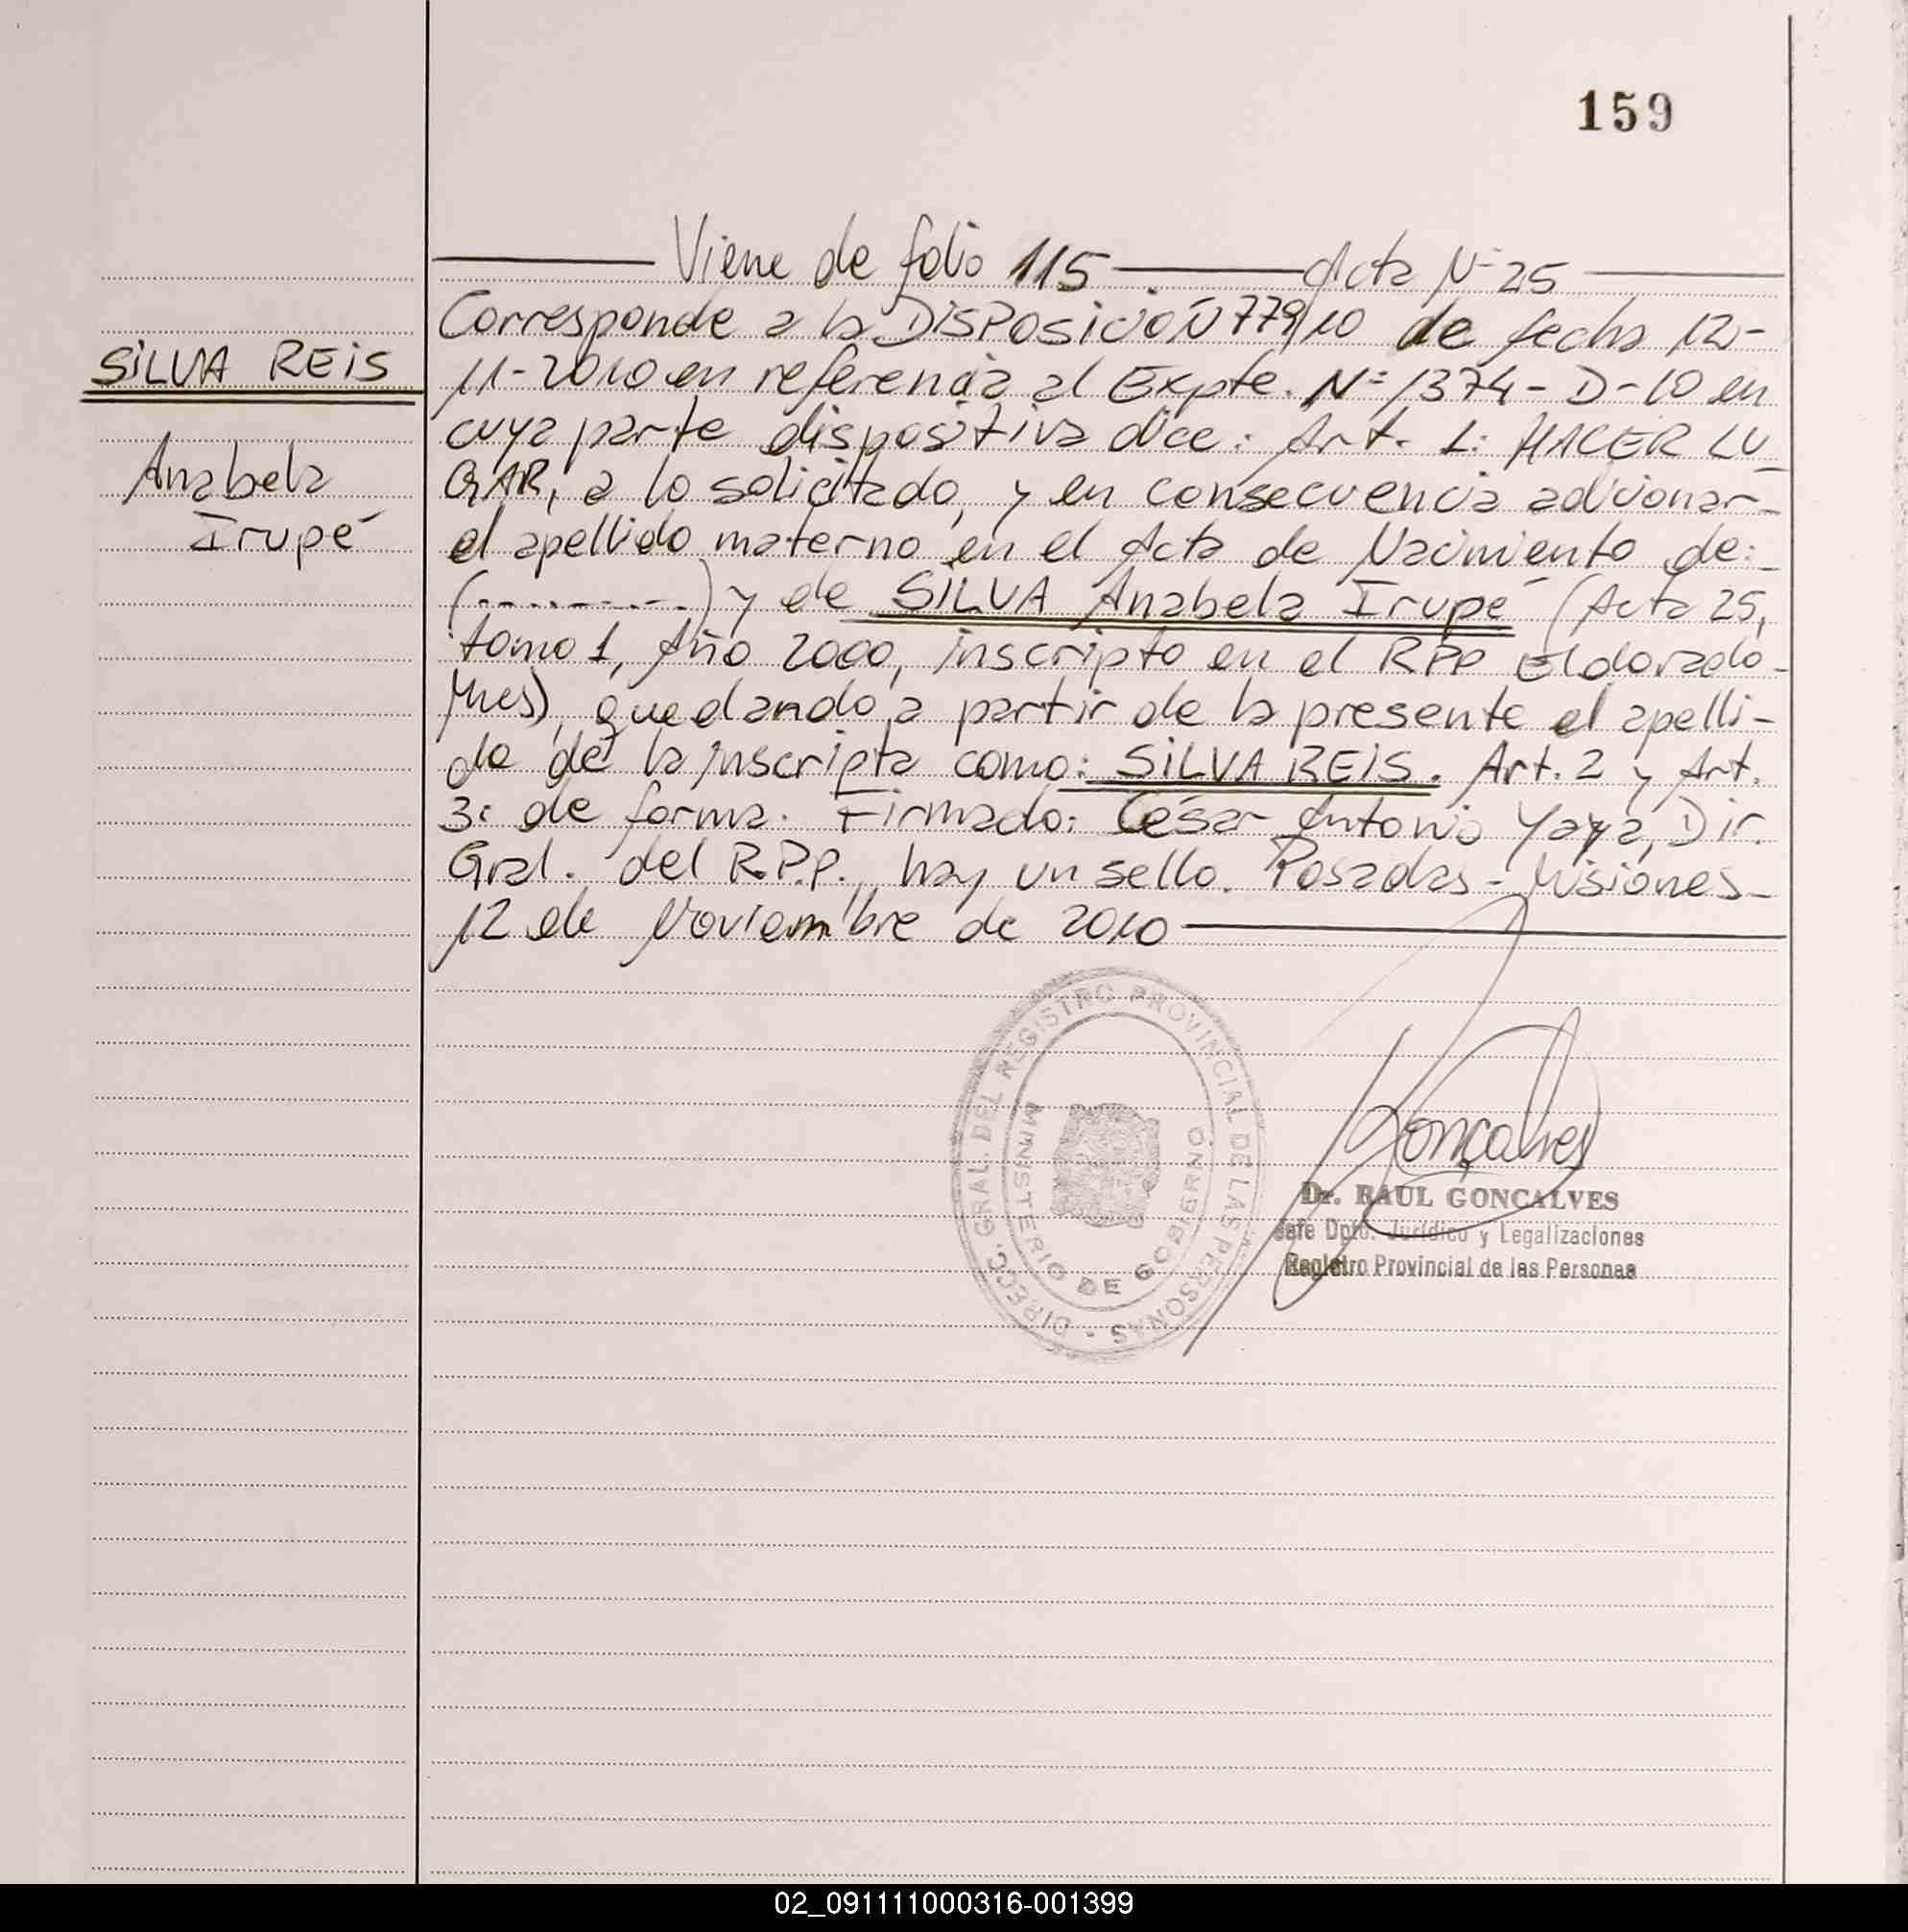 159
Viene de folio 115 Acta Nº 25
Corresponde a la DISPOSICIÓN 779/10 de fecha 12-
SILVA REIS
11-2010 en referencia al Expte. Nº 1374-D-10 en
cuya parte dispositiva dice: Art. 1: HACER LU
Anabela
GAR, a lo solicitado, y en consecuencia adicionar
Irupé
el apellido materno en el Acta de Nacimiento de:
(..........) y de SILVA Anabela Irupé (Acta 25,
tomo 1, Año 2000, inscripto en el RPP Eldorado-
Mnes), quedando a partir de la presente el apelli-
do de la inscripta como: SILVA REIS. Art. 2 y Art.
3: de forma. Firmado: César Antonio Yaya, Dir.
Gral. del R.P.P., hay un sello. Posadas - Misiones-
12 de Noviembre de 2010
DIRECC. GRAL. DEL REGISTRO PROVINCIAL DE LAS PERSONAS -
MINISTERIO DE GOBIERNO
Gonçalves
Dr. RAUL GONCALVES
Jefe Dpto. Jurídico y Legalizaciones
Registro Provincial de las Personas
02_091111000316-001399